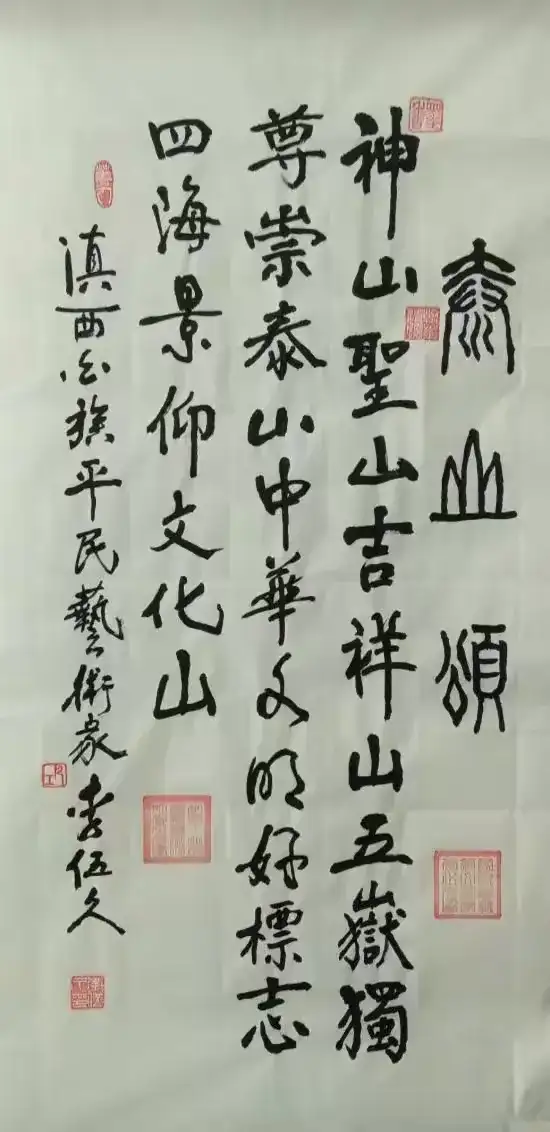 泰山頌
神山聖山吉祥山五嶽獨
尊崇泰山中華文明好標志
四海景仰文化山
滇西白族平民藝術家李伍久